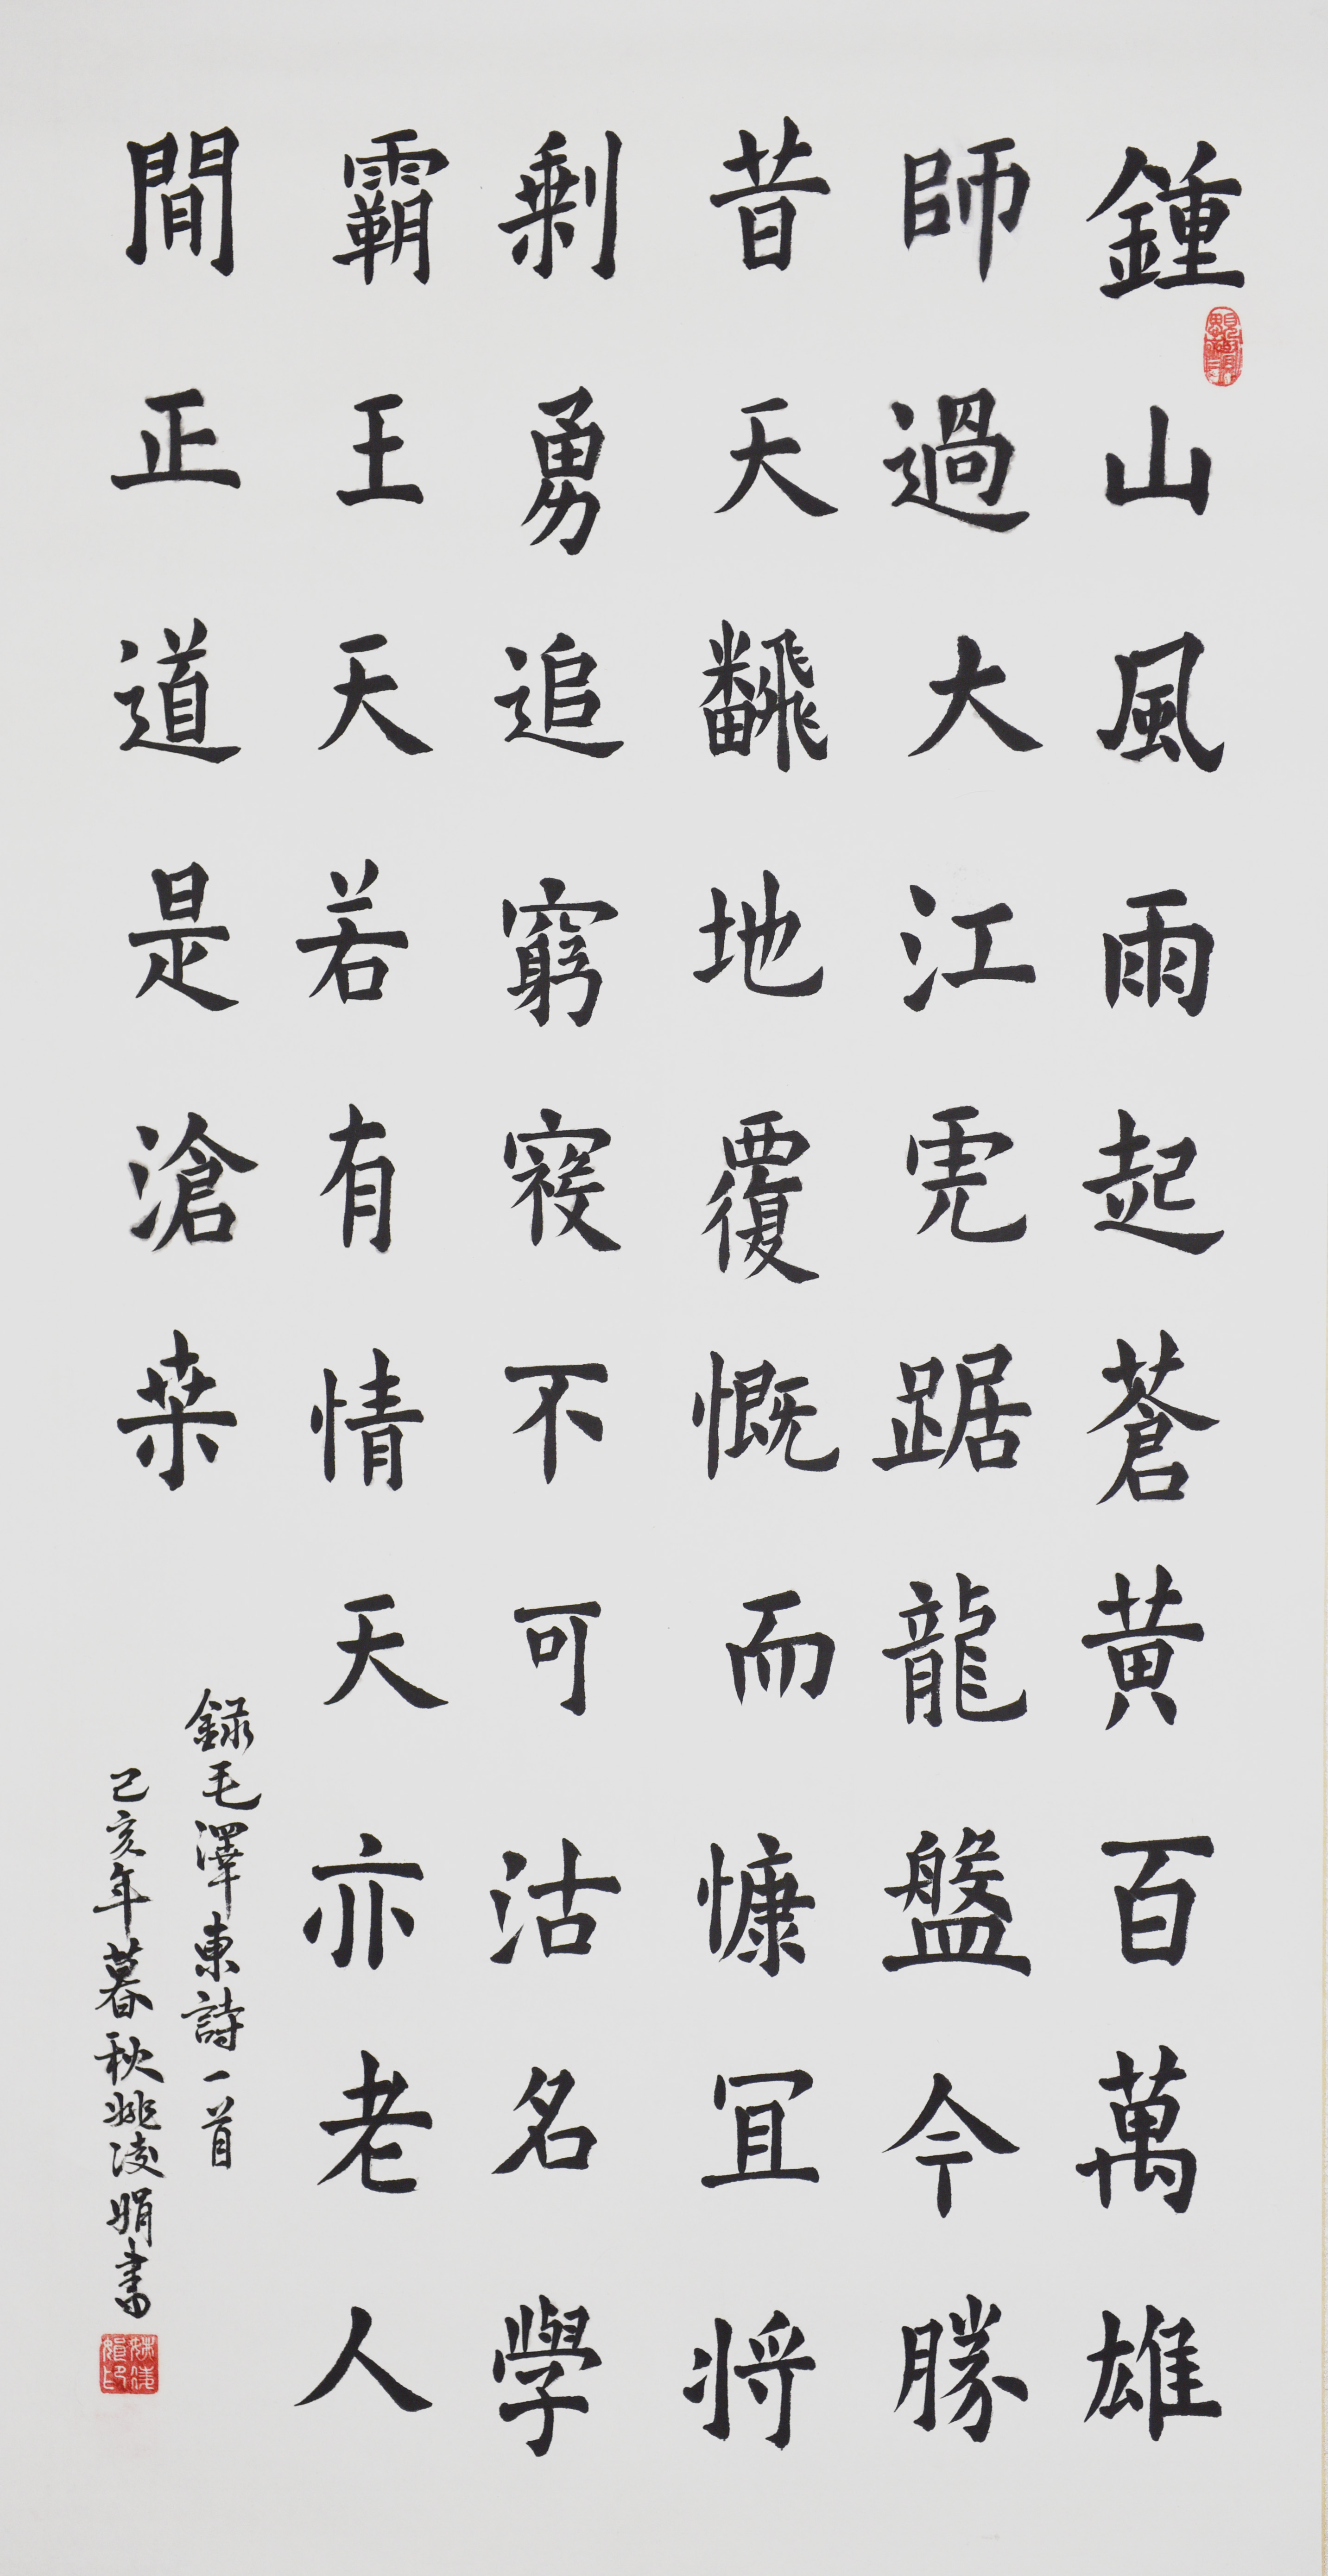 鍾山風雨起蒼黃百萬雄
師過大江虎踞龍盤今勝
昔天翻地覆慨而慷宜將
剩勇追窮寇不可沽名學
霸王天若有情天亦老人
間正道是滄桑
錄毛澤東詩一首
己亥年暮秋姚凌娟書